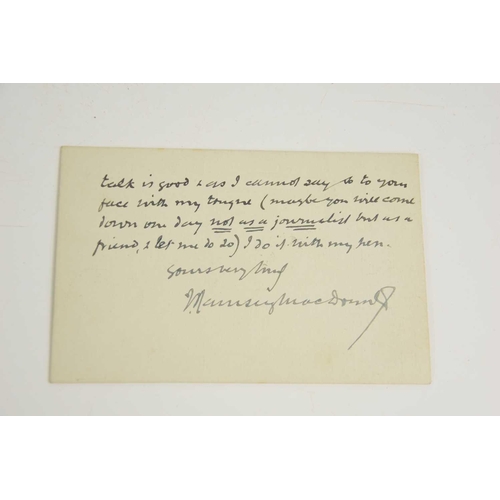 talk is good & as I cannot say so to your
face with my tongue (maybe you will come
down one day not as a journalist but as a
friend, & let me do so) I do it with my pen.
Yours very truly
J Ramsay MacDonald